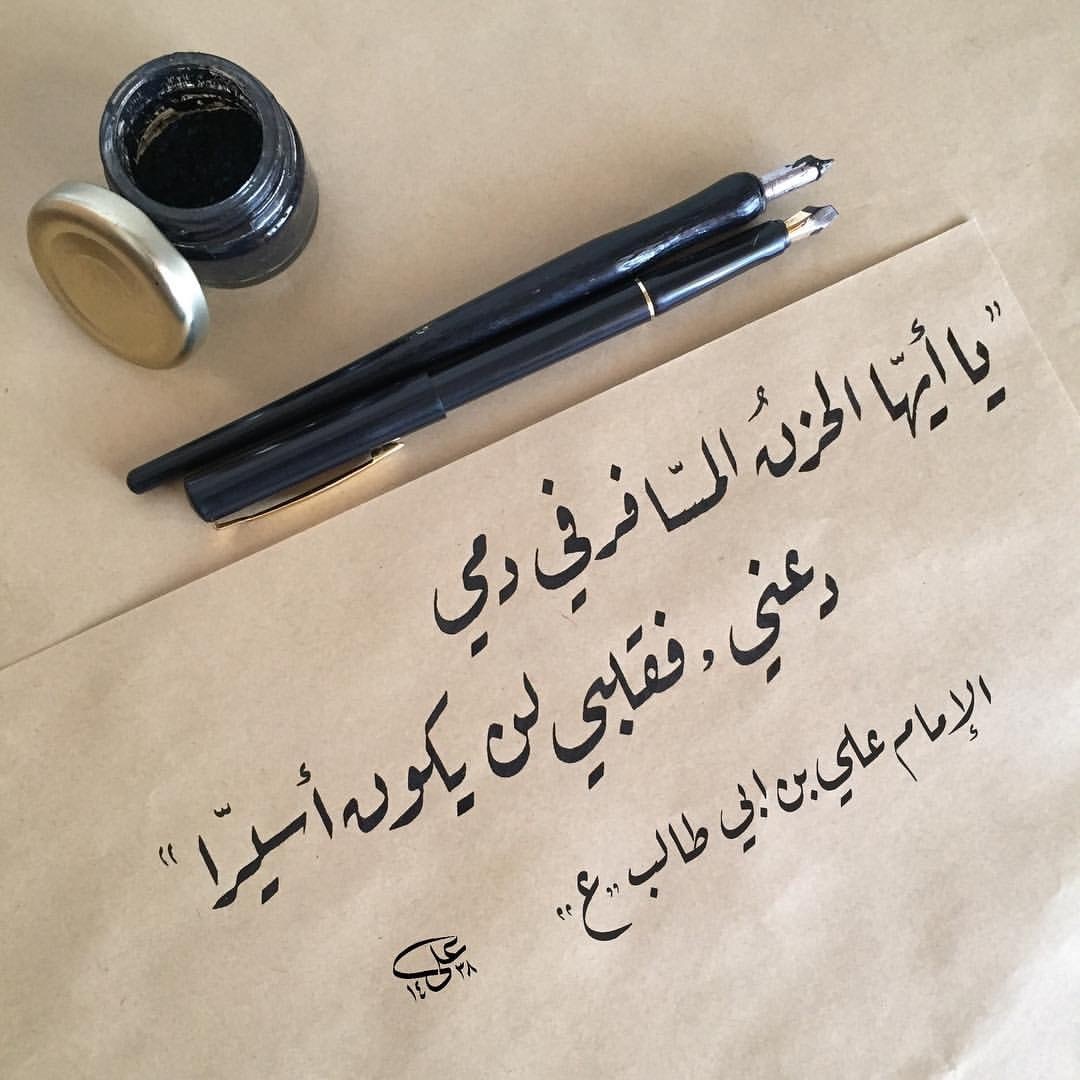 "يا أيّها الحزنُ المسّافر في دمي
دعني، فقلبي لن يكون أسيرّا"
الإمام علي بن ابي طالب "ع"
علي
١٤٣٨